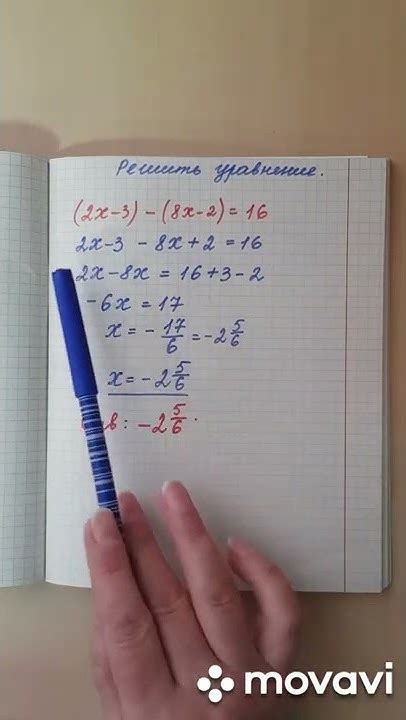 Решить уравнение.
(2x-3) - (8x-2) = 16
2x-3 - 8x+2 = 16
2x-8x = 16+3-2
-6x = 17
x = - 17/6 = -2 5/6
x = -2 5/6
: -2 5/6.
movavi